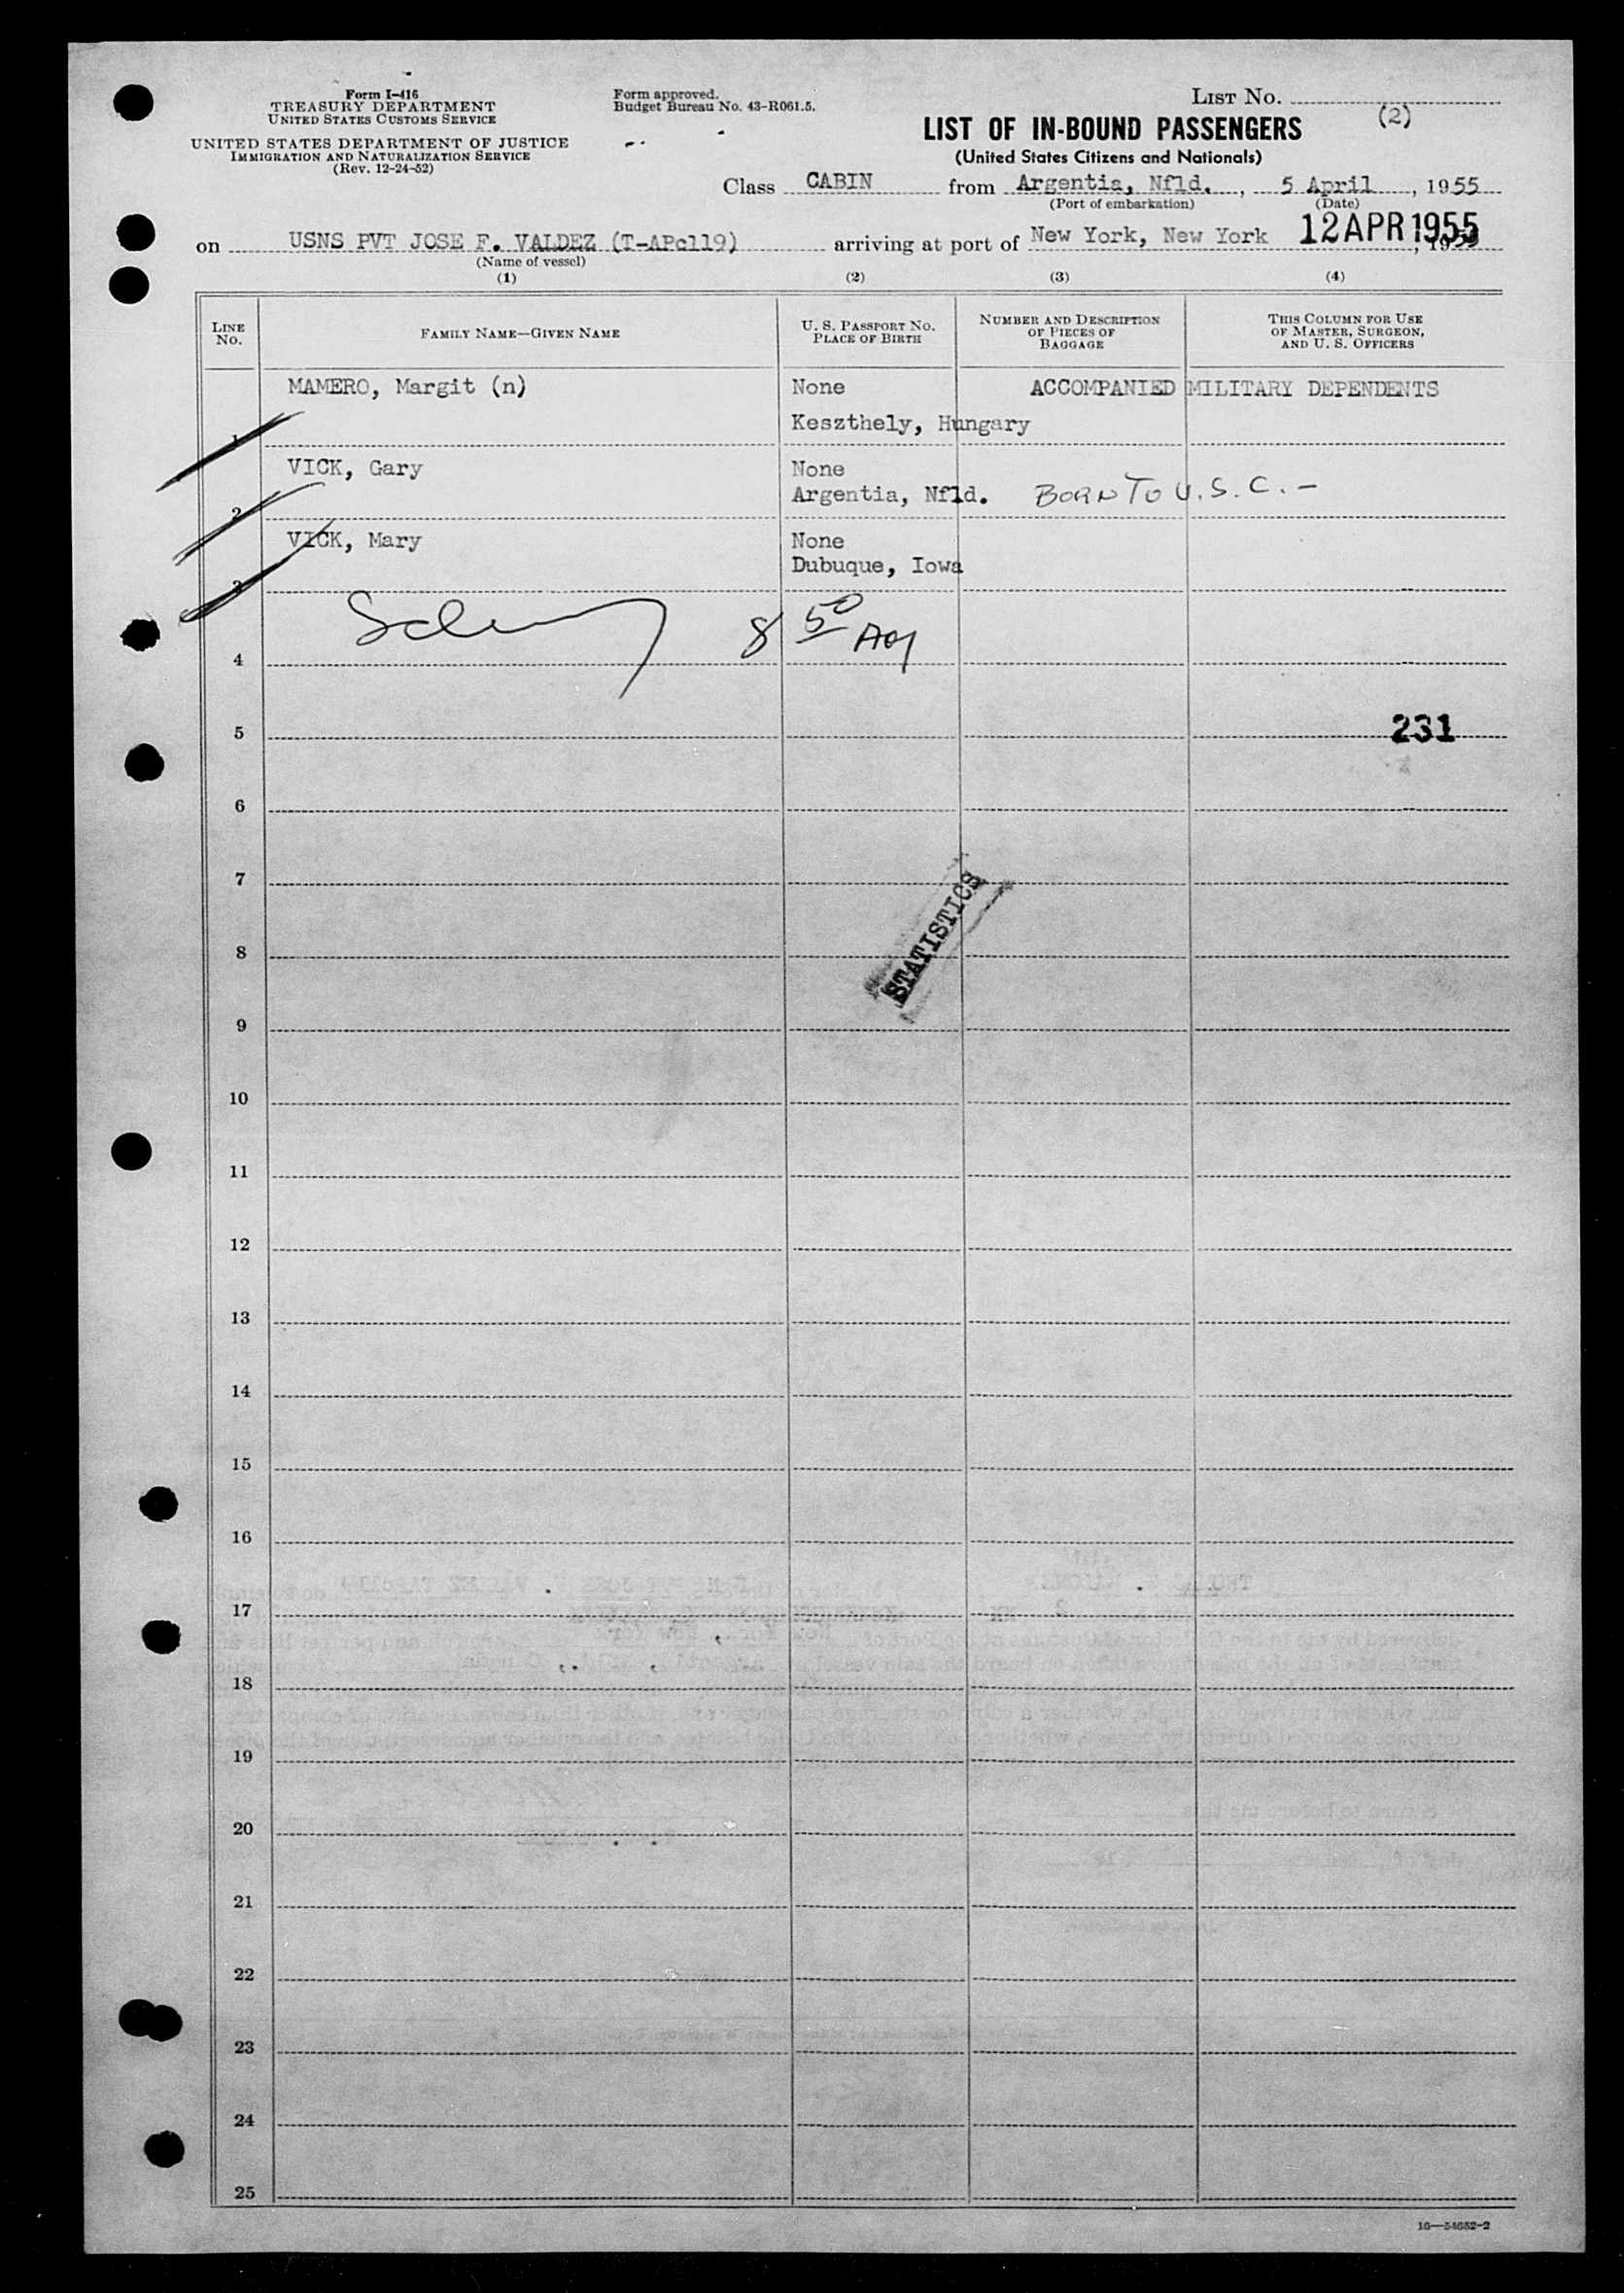 Form I-416
TREASURY DEPARTMENT
UNITED STATES CUSTOMS SERVICE
UNITED STATES DEPARTMENT OF JUSTICE
IMMIGRATION AND NATURALIZATION SERVICE
(Rev. 12-24-52)
Form approved.
Budget Bureau No. 43-R061.5.
LIST NO.
(2)
LIST OF IN-BOUND PASSENGERS
(United States Citizens and Nationals)
Class CABIN from Argentia, Nfld., 5 April, 1955
(Port of embarkation) (Date)
on USNS PVT JOSE F. VALDEZ (T-APc119) arriving at port of New York, New York 12 APR 1955
(Name of vessel)
(1) (2) (3) (4)
LINE NO. FAMILY NAME—GIVEN NAME U. S. PASSPORT NO. PLACE OF BIRTH NUMBER AND DESCRIPTION OF PIECES OF BAGGAGE THIS COLUMN FOR USE OF MASTER, SURGEON, AND U. S. OFFICERS
MAMERO, Margit (n) None ACCOMPANIED MILITARY DEPENDENTS
1 Keszthely, Hungary
VICK, Gary None
2 Argentia, Nfld. BORN TO U.S.C. -
VICK, Mary None
3 Dubuque, Iowa
4 8 50 AM
5 231
6
7
STATISTICS
8
9
10
11
12
13
14
15
16
17
18
19
20
21
22
23
24
25
16—54652-2